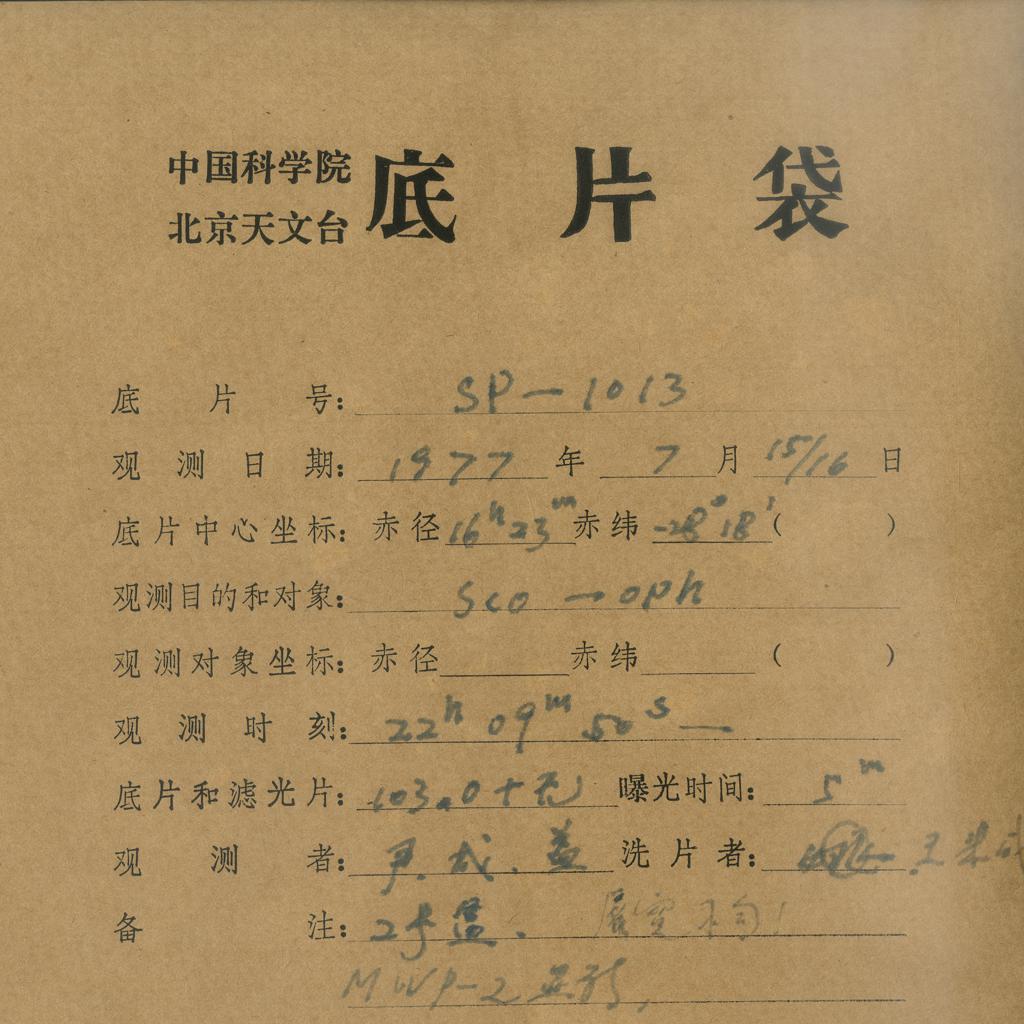 中国科学院
北京天文台
底片袋
底片号: SP-1013
观测日期: 1977年7月15/16日
底片中心坐标: 赤径16h23m赤纬-28°18'( )
观测目的和对象: Sco→oph
观测对象坐标: 赤径 赤纬 ( )
观测时刻: 22h09m50s—
底片和滤光片: 103a0+无 曝光时间: 5m
观测者: 成、盖 洗片者: 王
备注: 2号盒. 不匀!
MWP-2